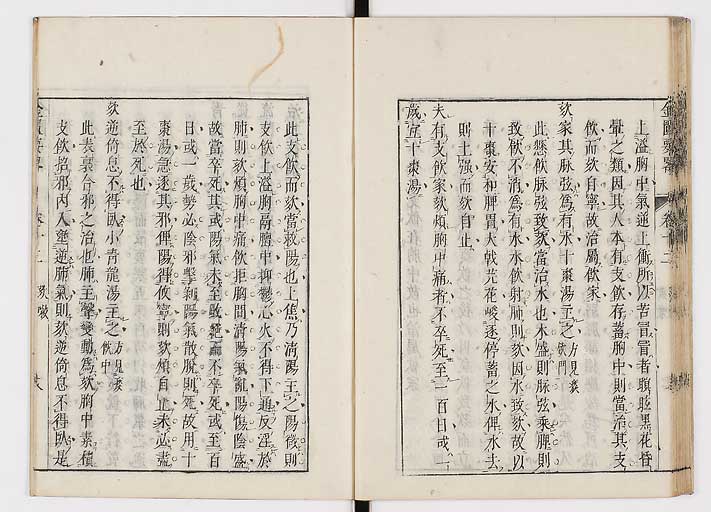 上溢胸中氣逆上衝所以苦冒冒者瞑眩黑花昏
暈之類因其人本有支飲存蓄胸中則當治其支
飲而欬自寧故治屬飲家
欬家其脉弦爲有水十棗湯主之方見痰飲門
此懸飲脉弦致欬當治水也木盛則脉弦乘脾則
致飲不消爲有水水飲射肺則欬因水致欬故以
十棗安和脾胃大戟芫花峻逐停蓄之水俾水去
則土强而欬自止
夫有支飲家欬煩胸中痛者不卒死至一百日或一
歲宜十棗湯
此支飲而欬當救陽也上焦乃清陽主之陽微則
支飲上溢胸膈膻中抑鬱心火不得下通反淫於
肺則欬煩胸中痛飲拒胸間清陽氣亂陽傷陰盛
故當卒死其或陽氣未至敗絶而不卒死或至一百
日或一歲勢必陰邪擊剝陽氣散脫則死故用十
棗湯急逐其邪俾陽得攸寧則欬煩自止未必盡
至於死也
欬逆倚息不得臥小青龍湯主之方見痰飲中
此表裏合邪之治也肺主聲變動爲欬胸中素積
支飲招邪內入壅逆肺氣則欬逆倚息不得臥是
金匱要畧 卷十二
金匱要畧 卷十二 咳嗽